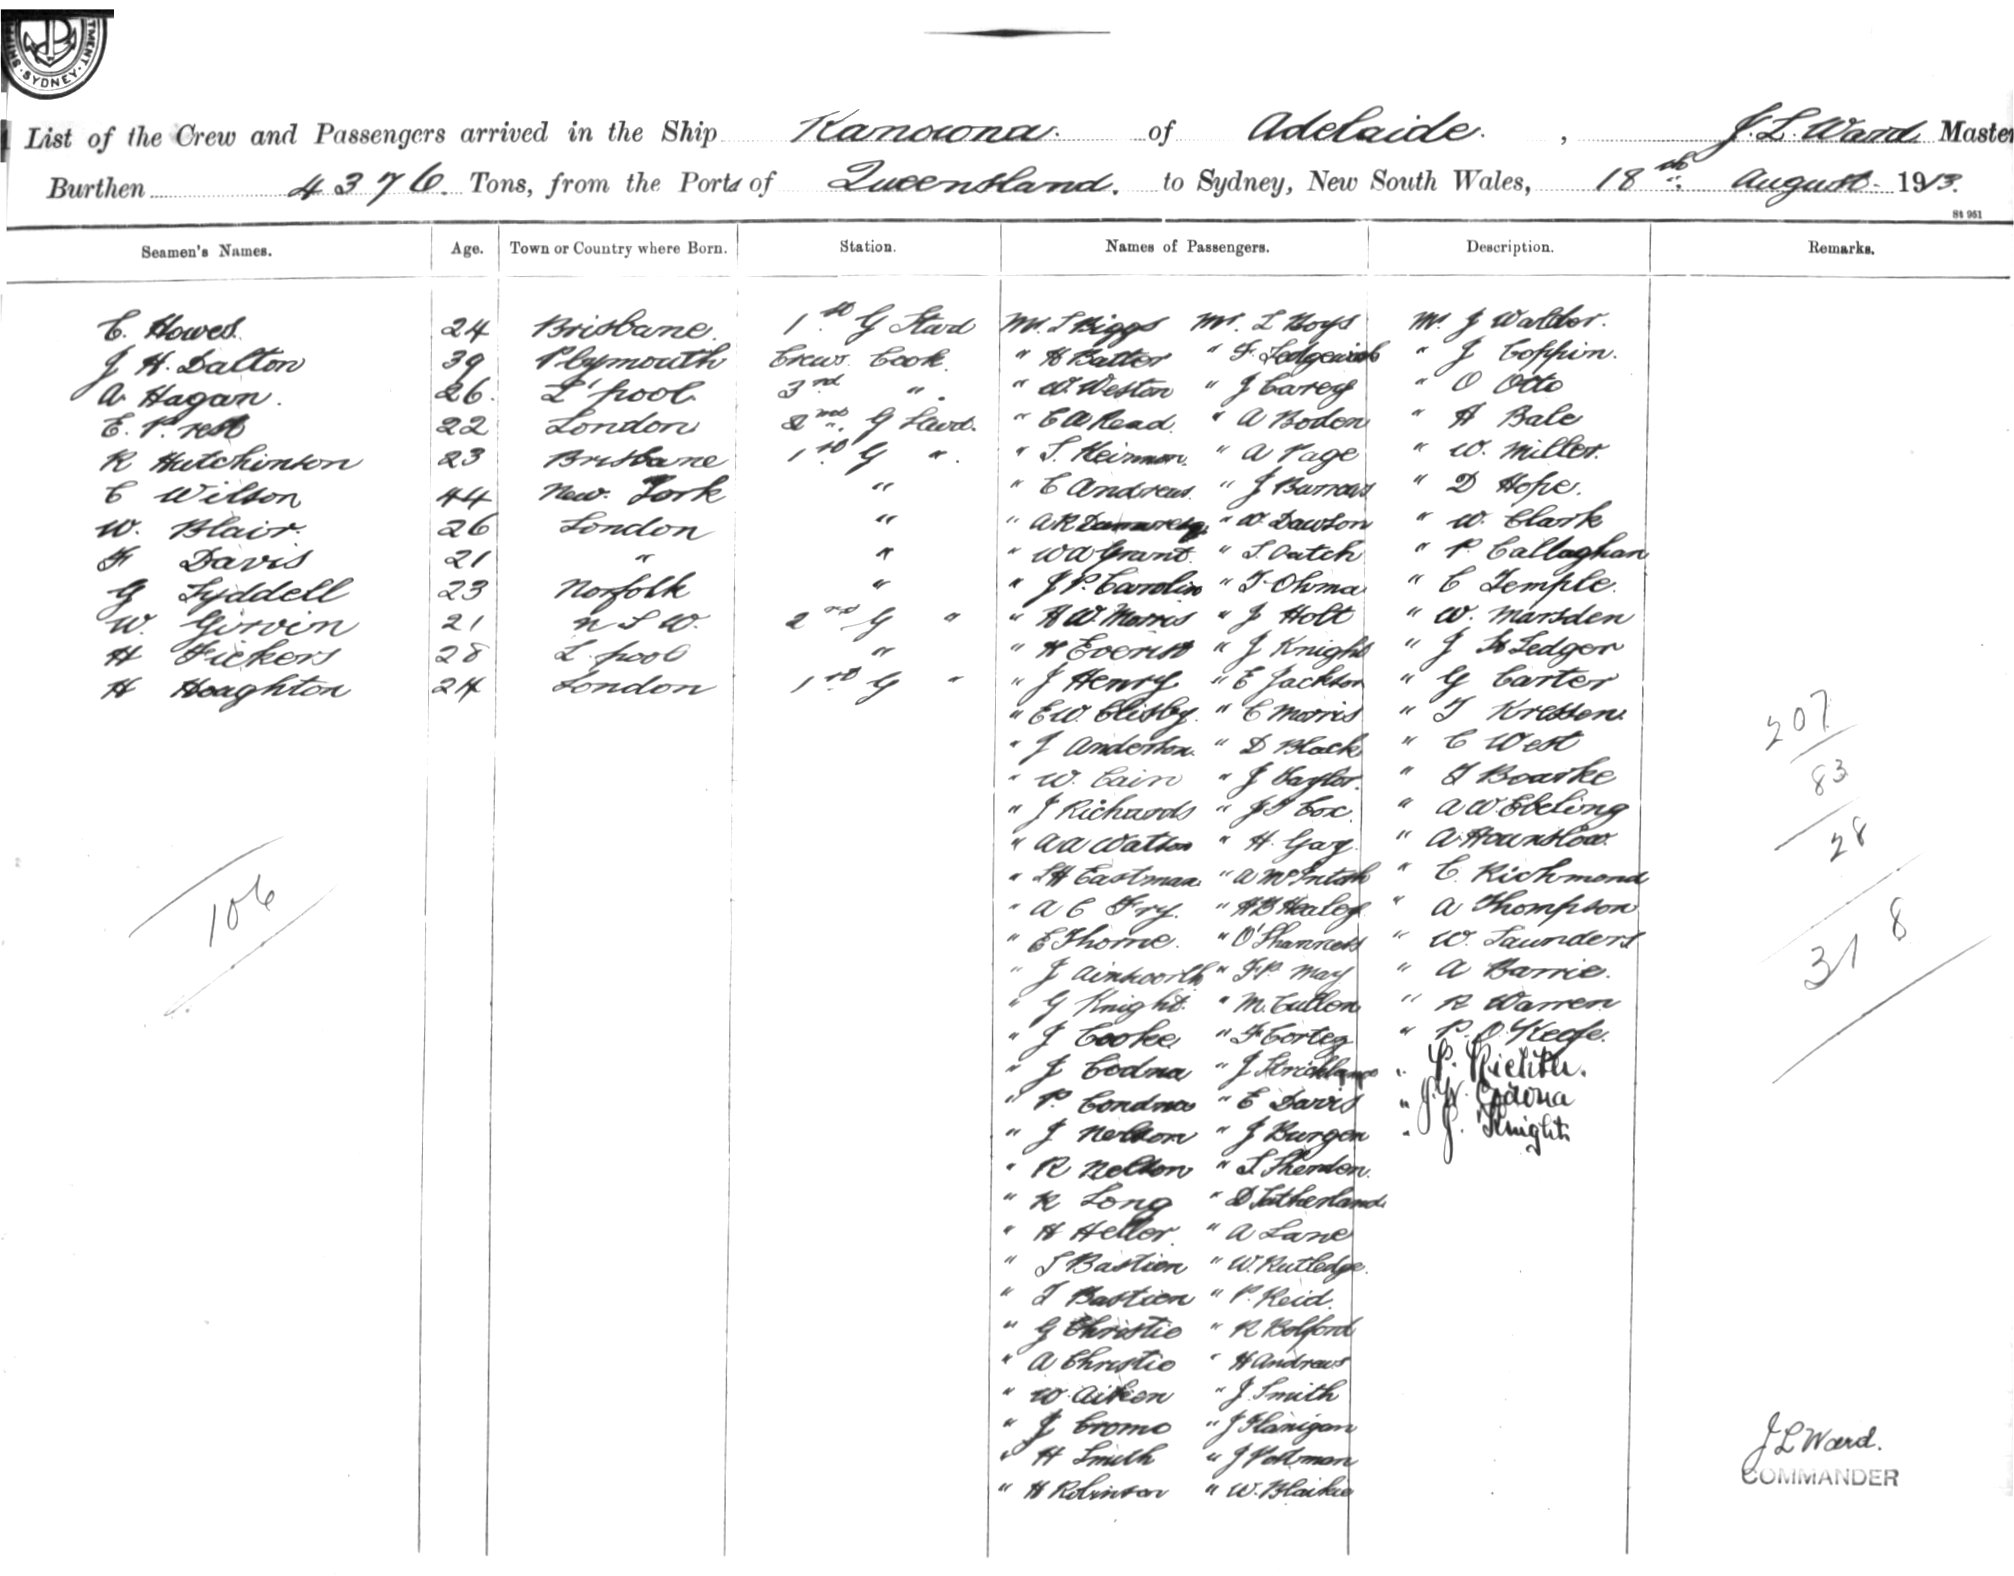 SYDNEY
List of the Crew and Passengers arrived in the Ship Kanowna. of Adelaide. , J. L. Ward Master
Burthen 4376. Tons, from the Ports of Queensland. to Sydney, New South Wales, 18th August 1913.
St 951
Seamen's Names. Age. Town or Country where Born. Station. Names of Passengers. Description. Remarks.
C. Howes. 24 Brisbane. 1st G Stwd Mr. S Biggs Mr. L Boys Mr. J Walder.
J H. Dalton 39 Plymouth Crews Cook. " H Batter " F. Sedgewick " J Coppin.
A. Hagan. 26. L'pool. 3rd " " W. Weston " J Carey " O Otto
E. 22 London 2nd G Stwd. " C A Read " A Boden " H Bale
R Hutchinson 23 Brisbane 1st G " " S. " A Page " W. Miller.
C Wilson 44 New York " " C Andrews " J Burrows " D Hope.
W. Blair. 26 London " " A R " W. Dawson " W. Clark
F Davis 21 " " " W A Grant " S. Oatch " P. Callaghan
G Lyddell 23 Norfolk " " J P. Carolin " T Ohma " C Temple.
W. Girvin 21 N S W. 2nd G " " H W. Morris " J Holt " W. Marsden
H Vickers 28 L'pool " " H Everist " J Knight " J H Ledger
H Hoaghton 24 London 1st G " " J Henry " E Jackson " G Carter
" E W. Clisby. " C Morris " T Kressen.
" J Anderson. " D Black " C West
" W. Cain " J Taylor. " T Bourke
" J Richards " J T Cox. " A W. Ebeling
" A A Watson " H. Gay. " A Hounslow.
" S H Eastman " A McIntosh " C. Richmond
" A C Fry. " H B Healey " A Thompson
" E Thorne. " O'Shanness " W. Saunders
" J Ainsworth " F P. May " A Barrie.
" G Knight. " M. Cullen " R Warren
" J Cooke " F Cortez " P. O'Keefe.
" J Codna " J Strickland " P. Richter.
" P. Condna " E Davis " J. W. Codona
" J Nelson " J Burgen " J. Knight.
" R Nelson " S. Shenden.
" R Long " D Sutherland.
" H Heller. " A Lane
" S Bastien " W. Rutledge.
" T Bastien " P. Reid.
" G Christie " R Bolford
" A Christie " H Andrews
" W. Aitken " J. Smith
" J Cromo " J Flanigan
" H Smith " J Postman
" H Robinson " W. Blaikie
207
83
28
318
106
J L Ward.
COMMANDER